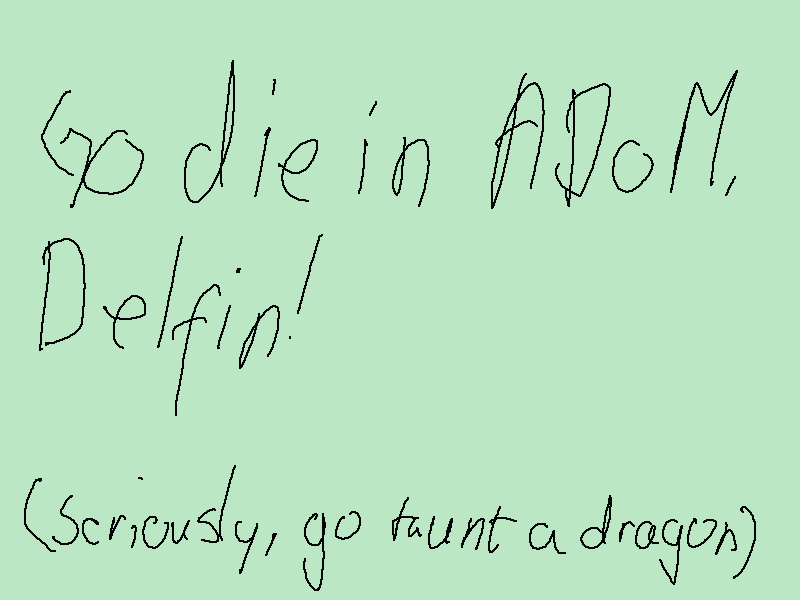 Go die in ADoM,
Delfin!
(Seriously, go taunt a dragon)